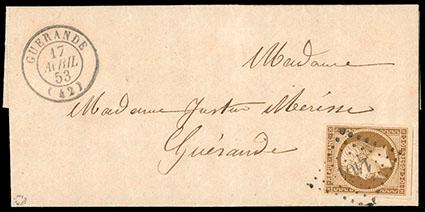 GUERANDE
17
AVRIL
53
(42)
Madame
Madame Justin Méresse
Guérande